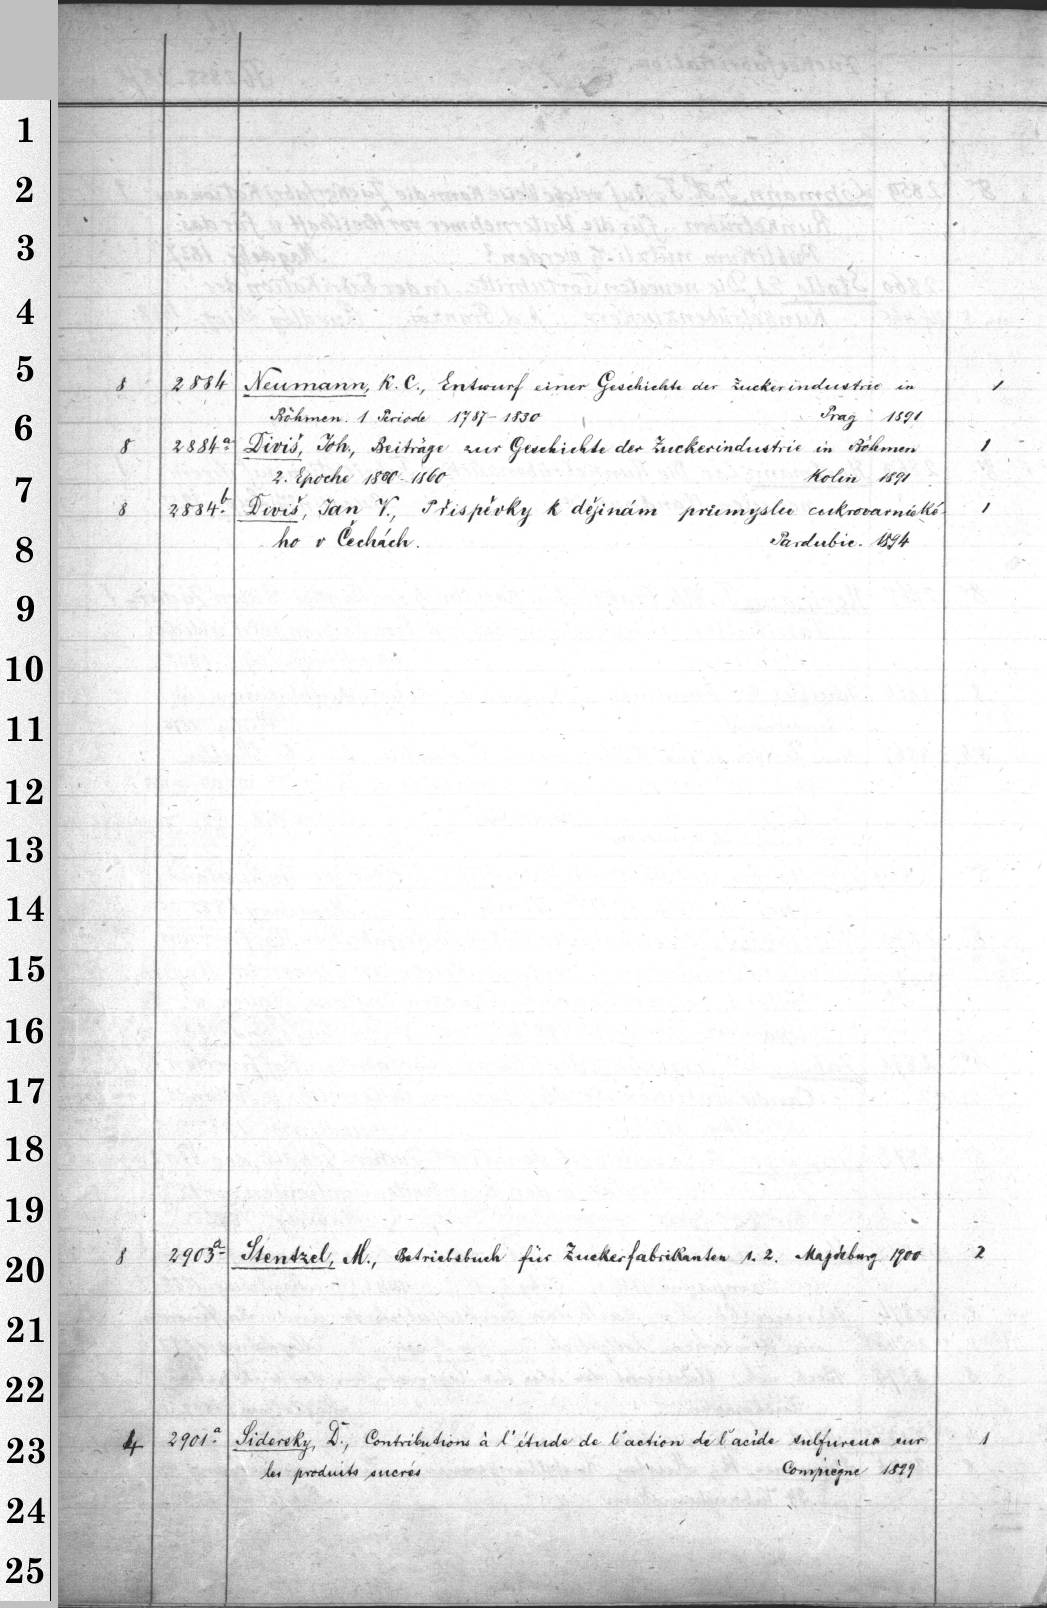 1
2
3
4
5
8 2884 Neumann, K. C., Entwurf einer Geschichte der Zuckerindustrie in 1
6
Böhmen. 1 Periode 1787-1830 Prag 1891
8 2884a Diviš, Joh., Beiträge zur Geschichte der Zuckerindustrie in Böhmen 1
7
2. Epoche 1830-1860 Kolin 1891
8 2884b. Diviš, Jan V., Příspěvky k dějinám průmyslu cukrovarnické- 1
8
ho v Čechách. Pardubic. 1894
9
10
11
12
13
14
15
16
17
18
19
8 2903a Stentzel, M., Betriebsbuch für Zuckerfabrikanten 1. 2. Magdeburg 1900 2
20
21
22
23
4 2901a Sidersky, D., Contributions à l'étude de l'action de l'acide sulfureux sur 1
les produits sucrés Compiègne 1899
24
25